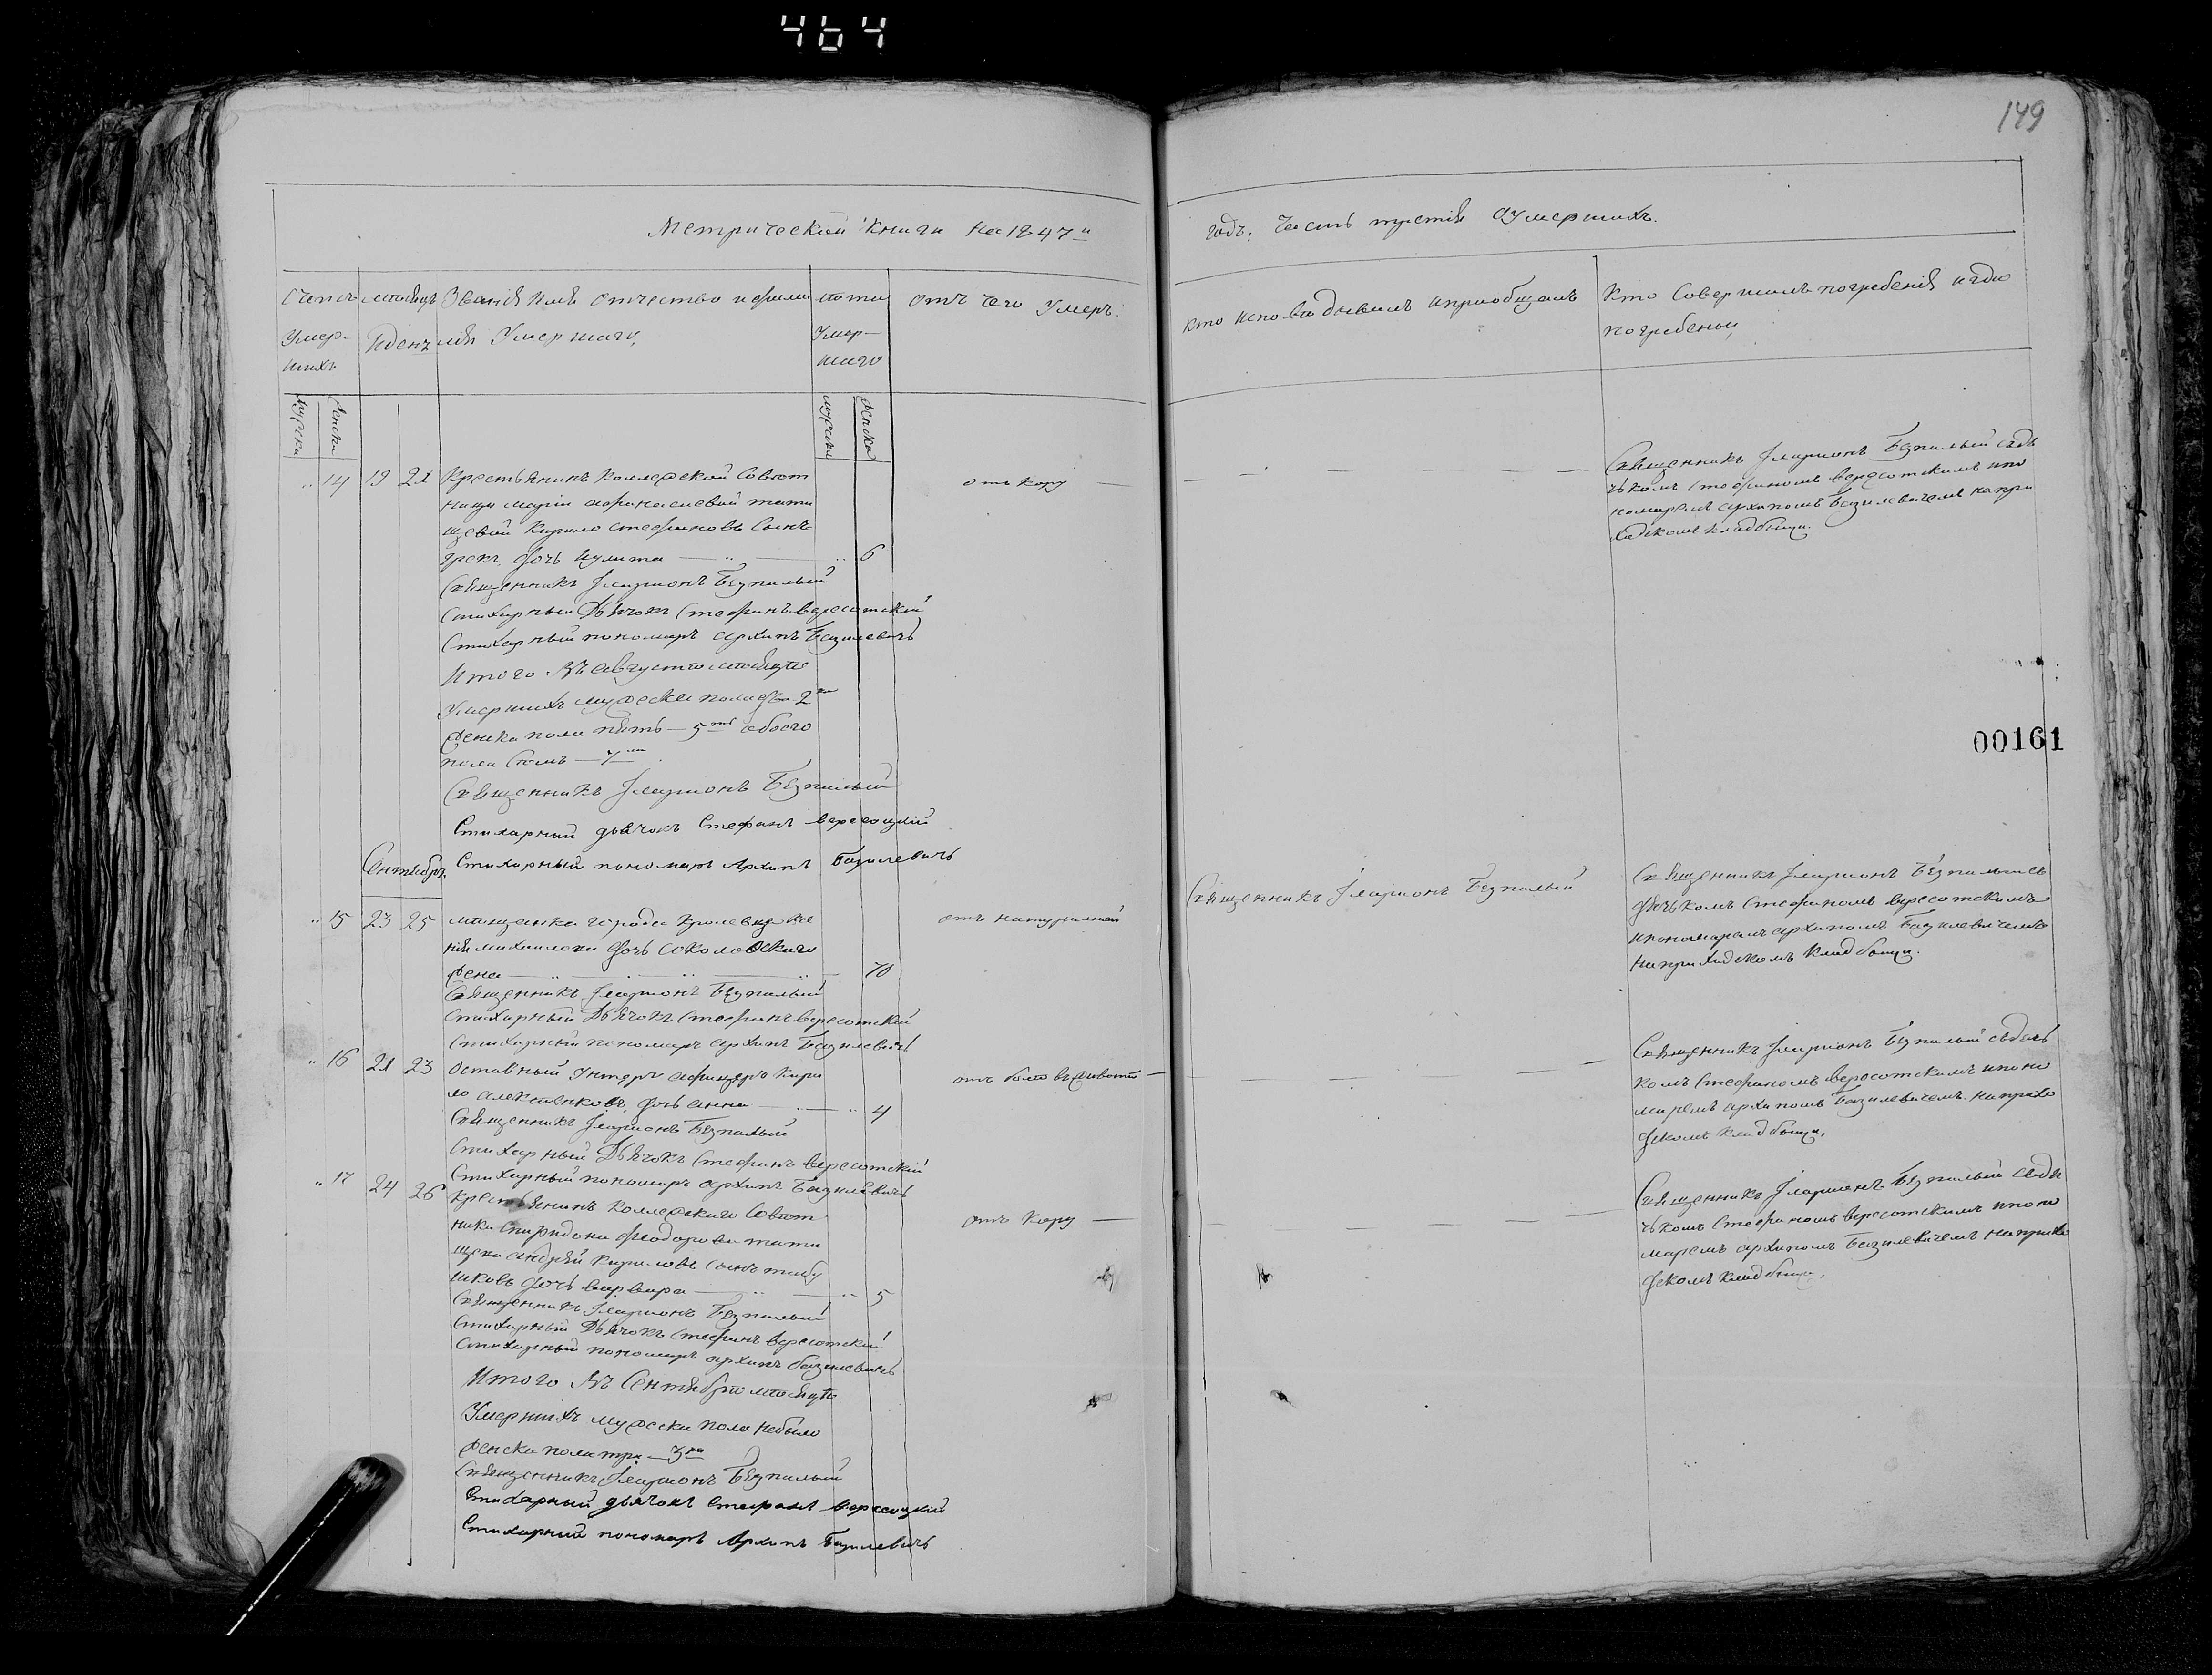 464
149
Метрической Книги на 1847 и
годъ, Часть третія Оумершихъ.
Счетъ
Умер-
шихъ
мужеска
женска
месяцъ
Иденъ
Званія Имя отчество и фами
лія Умершаго,
лѣта
Умер-
шаго
мужеска
женска
Отъ чего Умеръ.
Кто исповѣдывалъ и приобщалъ
Кто Совершалъ погребенія и гдѣ
погребены,
14 19 21
Крестьянинъ Колежской Совѣт
ницы маріи афанасиевой тати
щевой Кирило стефановъ Сынъ
грекъ, дочь Иулита 6
отъ кору
Священникъ Іларионъ Безпалый съдя
чькомъ стефаномъ вересотскимъ ипо
номаремъ архипомъ Базилевичемъ напри
ходскомъ кладбищи.
Священникъ Іларионъ Безпалый
Стихарный Дьячокъ Стефанъ вересотский
Стихарный пономаръ архипъ Базилевичъ
Итого въ августѣ мѣсяцѣ
Умершихъ мужеска пола два 2 ва
женска пола пять — 5 ть обоего
пола Семъ — 7 мъ
00161
Священникъ Іларионъ Безпалый
Стихарный дьячокъ Стефанъ вересоцкий
Стихарный пономаръ Архипъ Базилевичъ
Сентябръ
15 23 25
мещанка города Кролевца ксе
нія михаилова дочь соколовскаго
жена 70
отъ натуральной
Священникъ Іларионъ Безпалый
Священникъ Іларионъ Безпалый съ
дячькомъ стефаномъ вересотскимъ
ипономаремъ архипомъ Базилевичемъ
наприходскомъ кладбищи.
Священникъ Іларионъ Безпалый
Стихарный Дьячокъ Стефанъ вересотский
Стихарный пономаръ архипъ Базилевичъ
16 21 23
Оставный Унтеръ афицеръ Кири
ло алексѣенковъ, дочь анна 4
отъ боли въ животѣ
Священникъ Іларионъ Безпалый съдячь
комъ стефаномъ вересотскимъ ипоно
маремъ архипомъ Базилевичемъ наприхо
дскомъ кладбищи,
Священникъ Іларионъ Безпалый
Стихарный Дьячокъ Стефанъ вересотский
Стихарный пономаръ архипъ Базилевичъ
17 24 26
Крестьянинъ Колежскаго Совѣт
ника Спиридона Феодорова тати
щева андрей Кириловъ Сынъ
дочь варвара 5
отъ Кору
Священникъ Іларионъ Безпалый съдя
чькомъ стефаномъ вересотскимъ ипоно
маремъ архипомъ Базилевичемъ наприхо
дскомъ кладбищи,
Священникъ Іларионъ Безпалый
Стихарный Дьячокъ Стефанъ вересотский
Стихарный пономаръ архипъ базилевичъ
Итого въ Сентябрѣ мѣсяцѣ
Умершихъ мужеска пола небыло
женска пола три — 3 ри
Священникъ Іларионъ Безпалый
Стихарный дьячокъ Стефанъ вересоцкий
Стихарний пономаръ Архипъ Базилевичъ